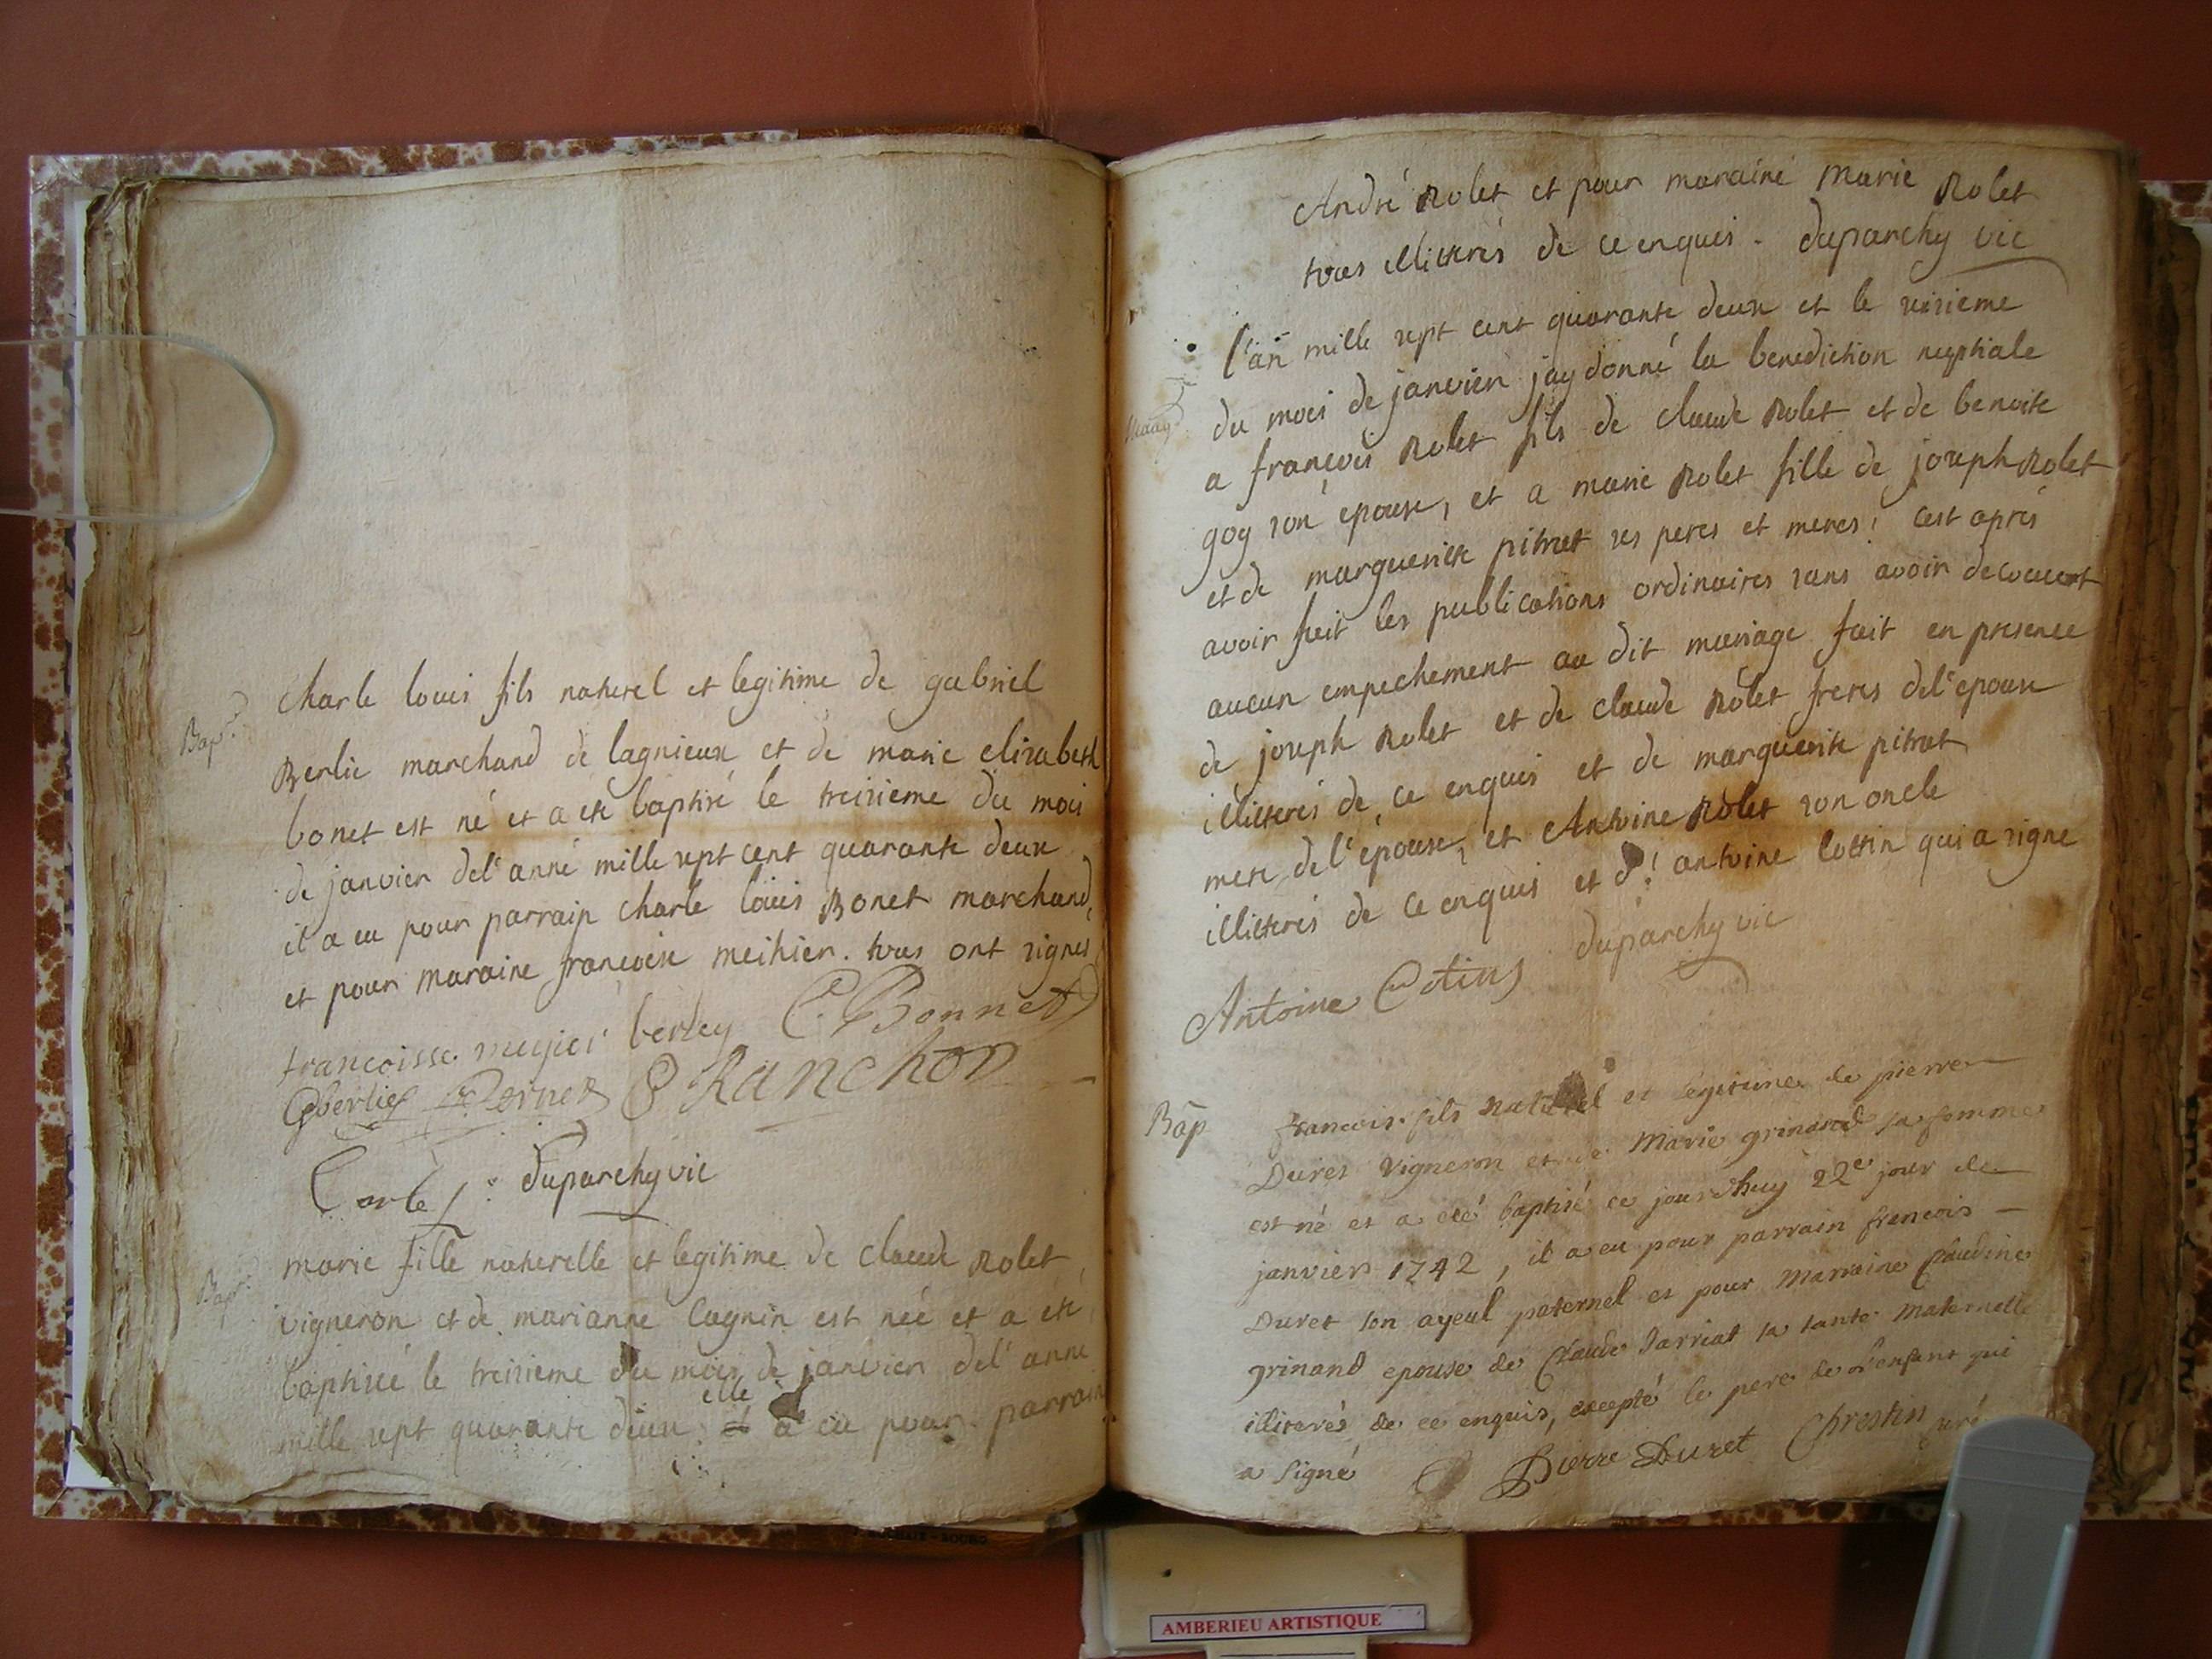 Bapt
Charle louis fils naturel et legitime de gabriel
Berlie marchand de lagnieux et de marie elizabeth
bonet est né et a ete baptisé le treisieme du mois
de janvier del'anné mille sept cent quarante deux
il a eu pour parrain charle louis Bonet marchand,
et pour maraine francoise meihier. tous ont signes
francoisse meyier berley C. Bonnet
Gberlie Ranchon
duparchy vic
Bapt
marie fille naturelle et legitime de claude Rolet
vigneron et de marianne Cagnin est née et a ete
baptisée le treisieme du mois de janvier del'anné
mille sept quarante deux elle a eu pour parrain
André Rolet et pour maraine Marie Rolet
tous illiterés de ce enquis. duparchy vic
Mariag
l'an mille sept cent quarante deux et le seisieme
du mois de janvier jay donné la benediction nuptiale
a francois Rolet fils de claude Rolet et de benoite
goy son epouse, et a marie Rolet fille de joseph Rolet
et de marguerite pitrat ses peres et meres! cest aprés
avoir fait les publications ordinaires sans avoir decouvert
aucun empechement au dit mariage fait en presence
de joseph Rolet et de claude Rolet freres del'epoux
illiterés de ce enquis et de marguerite pitrat
mere del'epouse, et Antoine Rolet son oncle
illiterés de ce enquis et antoine cottin qui a signe
duparchy vic
Antoine Cotin
Bap
francois fils naturel et legitime de pierre
Duret Vigneron et de Marie grinand sa femme
est né et a eté baptisé ce jourdhuy 22e jour de
janvier 1742, il a eu pour parrain francois
Duret son ayeul paternel et pour Marraine Claudine
grinand epouse de Claude Jarriat sa tante maternelle
illiterés de ce enquis, excepté le pere de l'enfant qui
a signé Pierre Duret Chrestin curé
AMBERIEU ARTISTIQUE